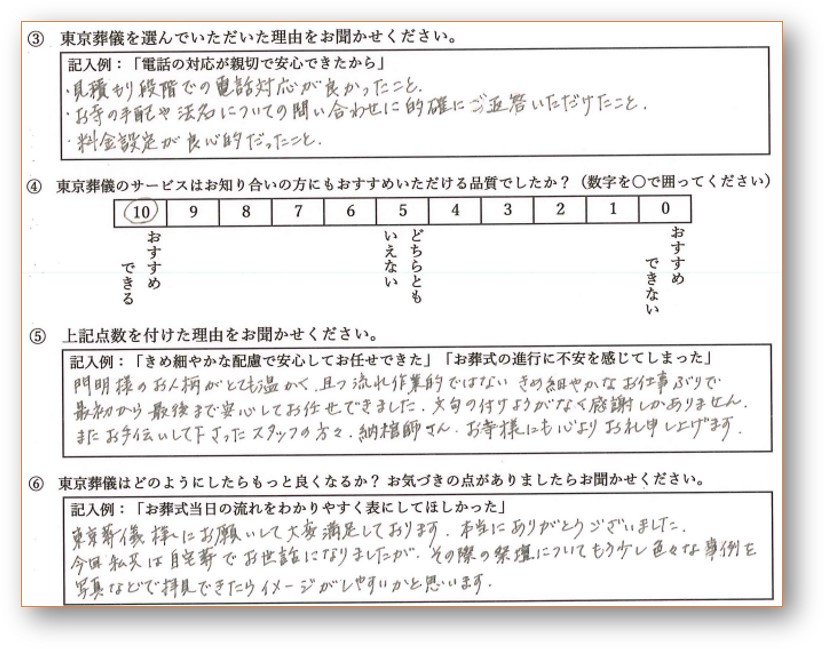 ③ 東京葬儀を選んでいただいた理由をお聞かせください。
記入例：「電話の対応が親切で安心できたから」
・見積もり段階での電話対応が良かったこと.
・お寺の手配や法名についての問い合わせに的確にご返答いただけたこと.
・料金設定が良心的だったこと.
④ 東京葬儀のサービスはお知り合いの方にもおすすめいただける品質でしたか？（数字を〇で囲ってください）
10 9 8 7 6 5 4 3 2 1 0
おすすめ
できる
どちらとも
いえない
おすすめ
できない
⑤ 上記点数を付けた理由をお聞かせください。
記入例：「きめ細やかな配慮で安心してお任せできた」「お葬式の進行に不安を感じてしまった」
門明様のお人柄がとても温かく、且つ流れ作業的ではない きめ細やかな お仕事ぶりで
最初から最後まで安心してお任せできました. 文句の付けようがなく感謝しかありません.
またお手伝いして下さったスタッフの方々、納棺師さん、お寺様にも心よりお礼申し上げます.
⑥ 東京葬儀はどのようにしたらもっと良くなるか？ お気づきの点がありましたらお聞かせください。
記入例：「お葬式当日の流れをわかりやすく表にしてほしかった」
東京葬儀様にお願いして大変満足しております. 本当にありがとうございました.
今回私共は自宅葬でお世話になりましたが、その際の祭壇についてもう少し色々な事例を
写真などで拝見できたらイメージがしやすいかと思います.